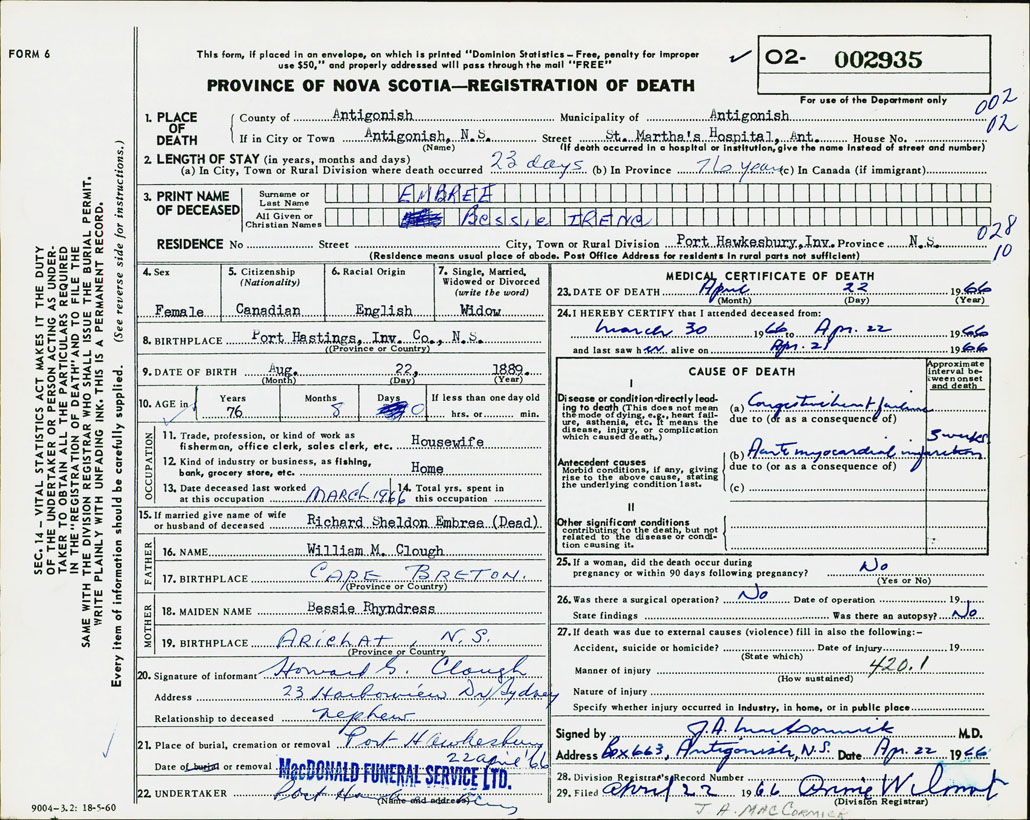 FORM 6
This form, if placed in an envelope, on which is printed "Dominion Statistics – Free, penalty for improper
use $50," and properly addressed will pass through the mail "FREE"
✓ 02- 002935
PROVINCE OF NOVA SCOTIA—REGISTRATION OF DEATH
For use of the Department only
002
02
1. PLACE OF DEATH
County of Antigonish Municipality of Antigonish
If in City or Town Antigonish, N.S. Street St. Martha's Hospital, Ant. House No.
(Name) (If death occurred in a hospital or institution, give the name instead of street and number)
2. LENGTH OF STAY (in years, months and days)
(a) In City, Town or Rural Division where death occurred 23 days (b) In Province 76 years (c) In Canada (if immigrant)
3. PRINT NAME OF DECEASED
Surname or Last Name EMBREE
All Given or Christian Names Bessie IRENE
028
10
RESIDENCE No Street City, Town or Rural Division Port Hawkesbury, Inv. Province N.S.
(Residence means usual place of abode. Post Office Address for residents in rural parts not sufficient)
4. Sex
Female
5. Citizenship
(Nationality)
Canadian
6. Racial Origin
English
7. Single, Married,
Widowed or Divorced
(write the word)
Widow
8. BIRTHPLACE Port Hastings, Inv. Co., N.S.
(Province or Country)
9. DATE OF BIRTH Aug. 22, 1889.
(Month) (Day) (Year)
10. AGE in
Years Months Days If less than one day old
76 8 0 hrs. or min.
OCCUPATION
11. Trade, profession, or kind of work as
fisherman, office clerk, sales clerk, etc. Housewife
12. Kind of industry or business, as fishing,
bank, grocery store, etc. Home
13. Date deceased last worked
at this occupation MARCH 1966
14. Total yrs. spent in
this occupation
15. If married give name of wife
or husband of deceased Richard Sheldon Embree (Dead)
FATHER
16. NAME William M. Clough
17. BIRTHPLACE CAPE BRETON.
(Province or Country)
MOTHER
18. MAIDEN NAME Bessie Rhyndress
19. BIRTHPLACE ARICHAT, N.S.
(Province or Country)
20. Signature of informant Howard G. Clough
Address 23 Harbourview Dr, Sydney
Relationship to deceased nephew
21. Place of burial, cremation or removal Port Hawkesbury
Date of burial or removal 22 april '66
MacDONALD FUNERAL SERVICE LTD.
22. UNDERTAKER Port
(Name and address)
9004-3.2: 18-5-60
MEDICAL CERTIFICATE OF DEATH
23. DATE OF DEATH April 22 1966
(Month) (Day) (Year)
24. I HEREBY CERTIFY that I attended deceased from:
March 30 1966 to Apr. 22 1966
and last saw her alive on Apr. 21 1966
CAUSE OF DEATH
Approximate interval between onset and death
I
Disease or condition directly leading
to death (This does not mean
the mode of dying, e.g., heart failure,
asthenia, etc. It means the
disease, injury, or complication
which caused death.)
(a) Congestive heart failure
due to (or as a consequence of)
3 weeks
Antecedent causes
Morbid conditions, if any, giving
rise to the above cause, stating
the underlying condition last.
(b) Acute myocardial infarction
due to (or as a consequence of)
(c)
II
Other significant conditions
contributing to the death, but not
related to the disease or condition
causing it.
25. If a woman, did the death occur during
pregnancy or within 90 days following pregnancy? No
(Yes or No)
26. Was there a surgical operation? No Date of operation 19
State findings Was there an autopsy? No
27. If death was due to external causes (violence) fill in also the following:–
Accident, suicide or homicide? Date of injury 19
(State which)
Manner of injury 420.1
(How sustained)
Nature of injury
Specify whether injury occurred in industry, in home, or in public place
Signed by J.A. MacCormick M.D.
Address Box 663, Antigonish, N.S. Date Apr. 22 1966
28. Division Registrar's Record Number
29. Filed April 22 1966 Annie Wilmot
(Division Registrar)
J A. MACCORMICK
SEC. 14 – VITAL STATISTICS ACT MAKES IT THE DUTY
OF THE UNDERTAKER OR PERSON ACTING AS UNDER-
TAKER TO OBTAIN ALL THE PARTICULARS REQUIRED
IN THE "REGISTRATION OF DEATH" AND TO FILE THE
SAME WITH THE DIVISION REGISTRAR WHO SHALL ISSUE THE BURIAL PERMIT.
WRITE PLAINLY WITH UNFADING INK. THIS IS A PERMANENT RECORD.
Every item of information should be carefully supplied. (See reverse side for instructions.)